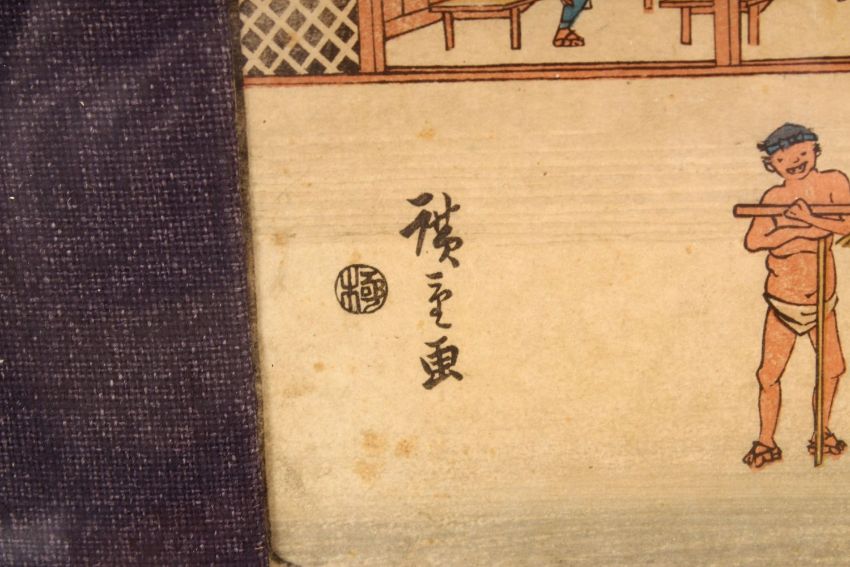 廣重画
極